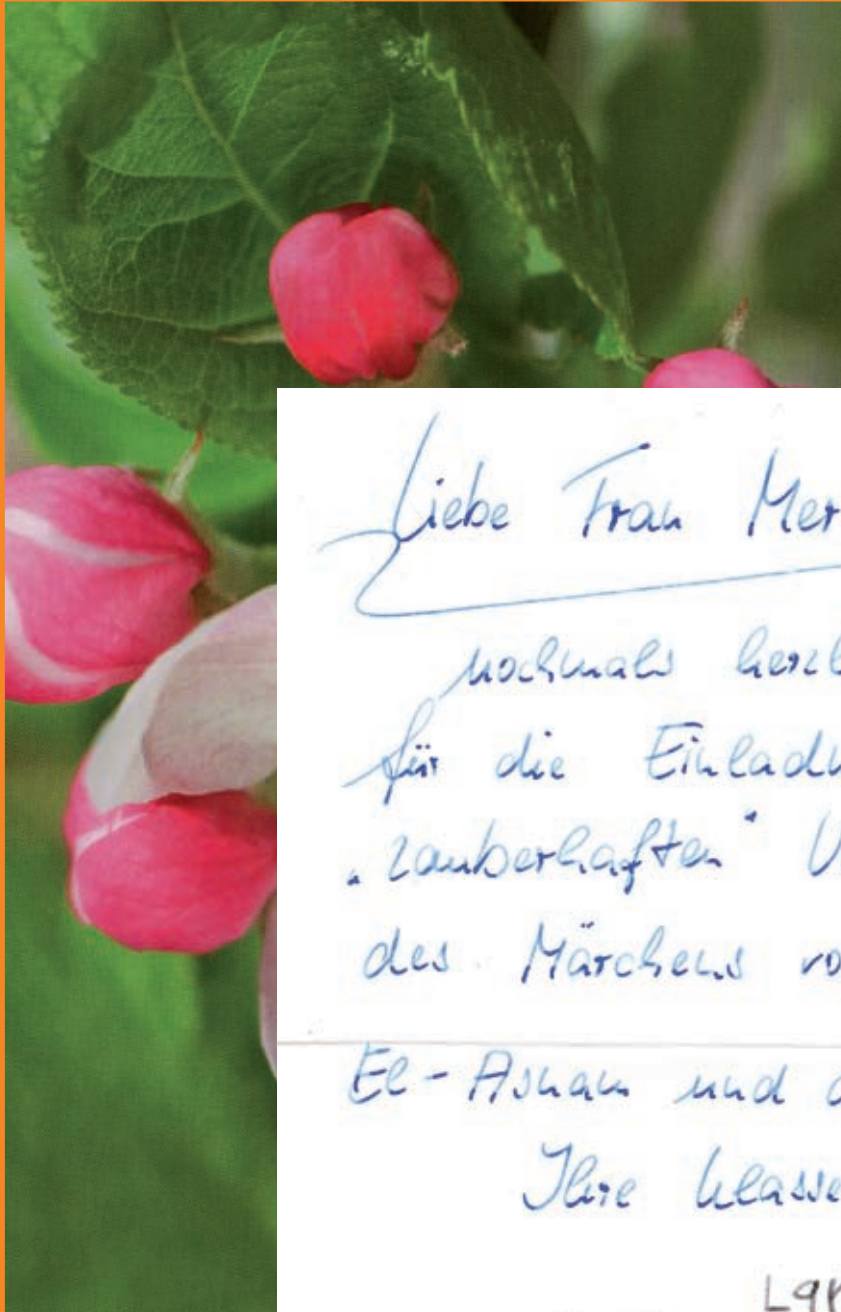 Liebe Frau Mer
nochmals herzl
für die Einladu
„zauberhaften“ V
des Märchens vo
El-Asnam und d
Ihre Klasse
Lar